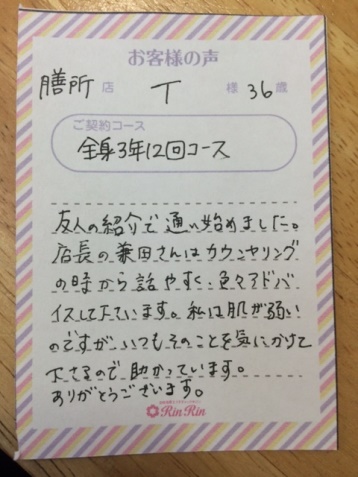 お客様の声
膳所 店 T 様 36 歳
ご契約コース
全身3年12回コース
友人の紹介で通い始めました。
店長の兼田さんはカウンセリング
の時から話やすく、色々アドバ
イスして下さいます。私は肌が弱い
のですが、いつもそのことを気にかけて
下さるので助かっています。
ありがとうございます。
RinRin